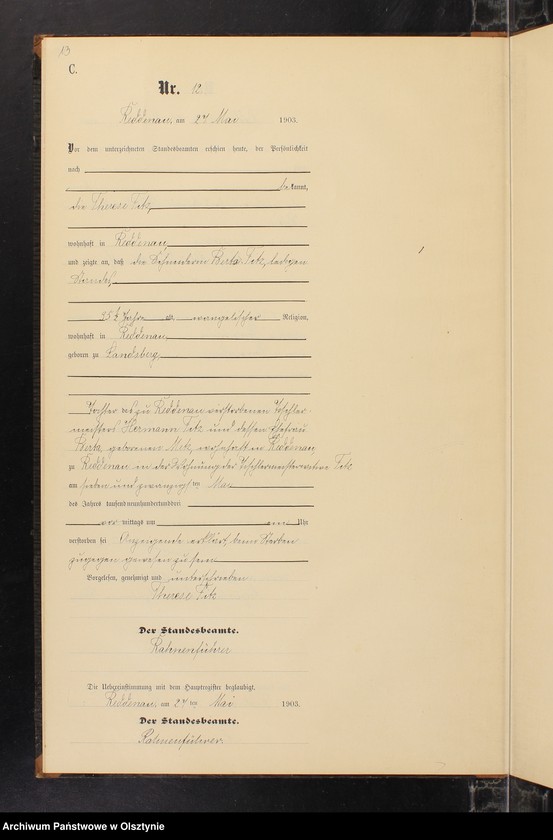 13
C.
Nr. 12
Reddenau, am 27 Mai 1903.
Vor dem unterzeichneten Standesbeamten erschien heute, der Persönlichkeit
nach
bekannt,
die Therese Titz
wohnhaft in Reddenau
und zeigte an, daß die Berta Titz, ledigen
Standes
Jahre evangelischer Religion,
wohnhaft in Reddenau
geboren zu Landsberg
Tochter des zu Reddenau verstorbenen Tischler-
meisters Hermann Titz und dessen Ehefrau
Berta, geborenen wohnhaft in Reddenau,
zu Reddenau in der Wohnung der Tischlermeisterwitwe Titz
am sieben und zwanzigsten Mai
des Jahres tausendneunhundertunddrei
vor mittags um ein Uhr
verstorben sei beim Sterben
zugegen gewesen zu sein
Vorgelesen, genehmigt und unterschrieben
Therese Titz
Der Standesbeamte.
Rahnenführer
Die Uebereinstimmung mit dem Hauptregister beglaubigt.
Reddenau, am 27 ten Mai 1903.
Der Standesbeamte.
Rahnenführer.
Archiwum Państwowe w Olsztynie